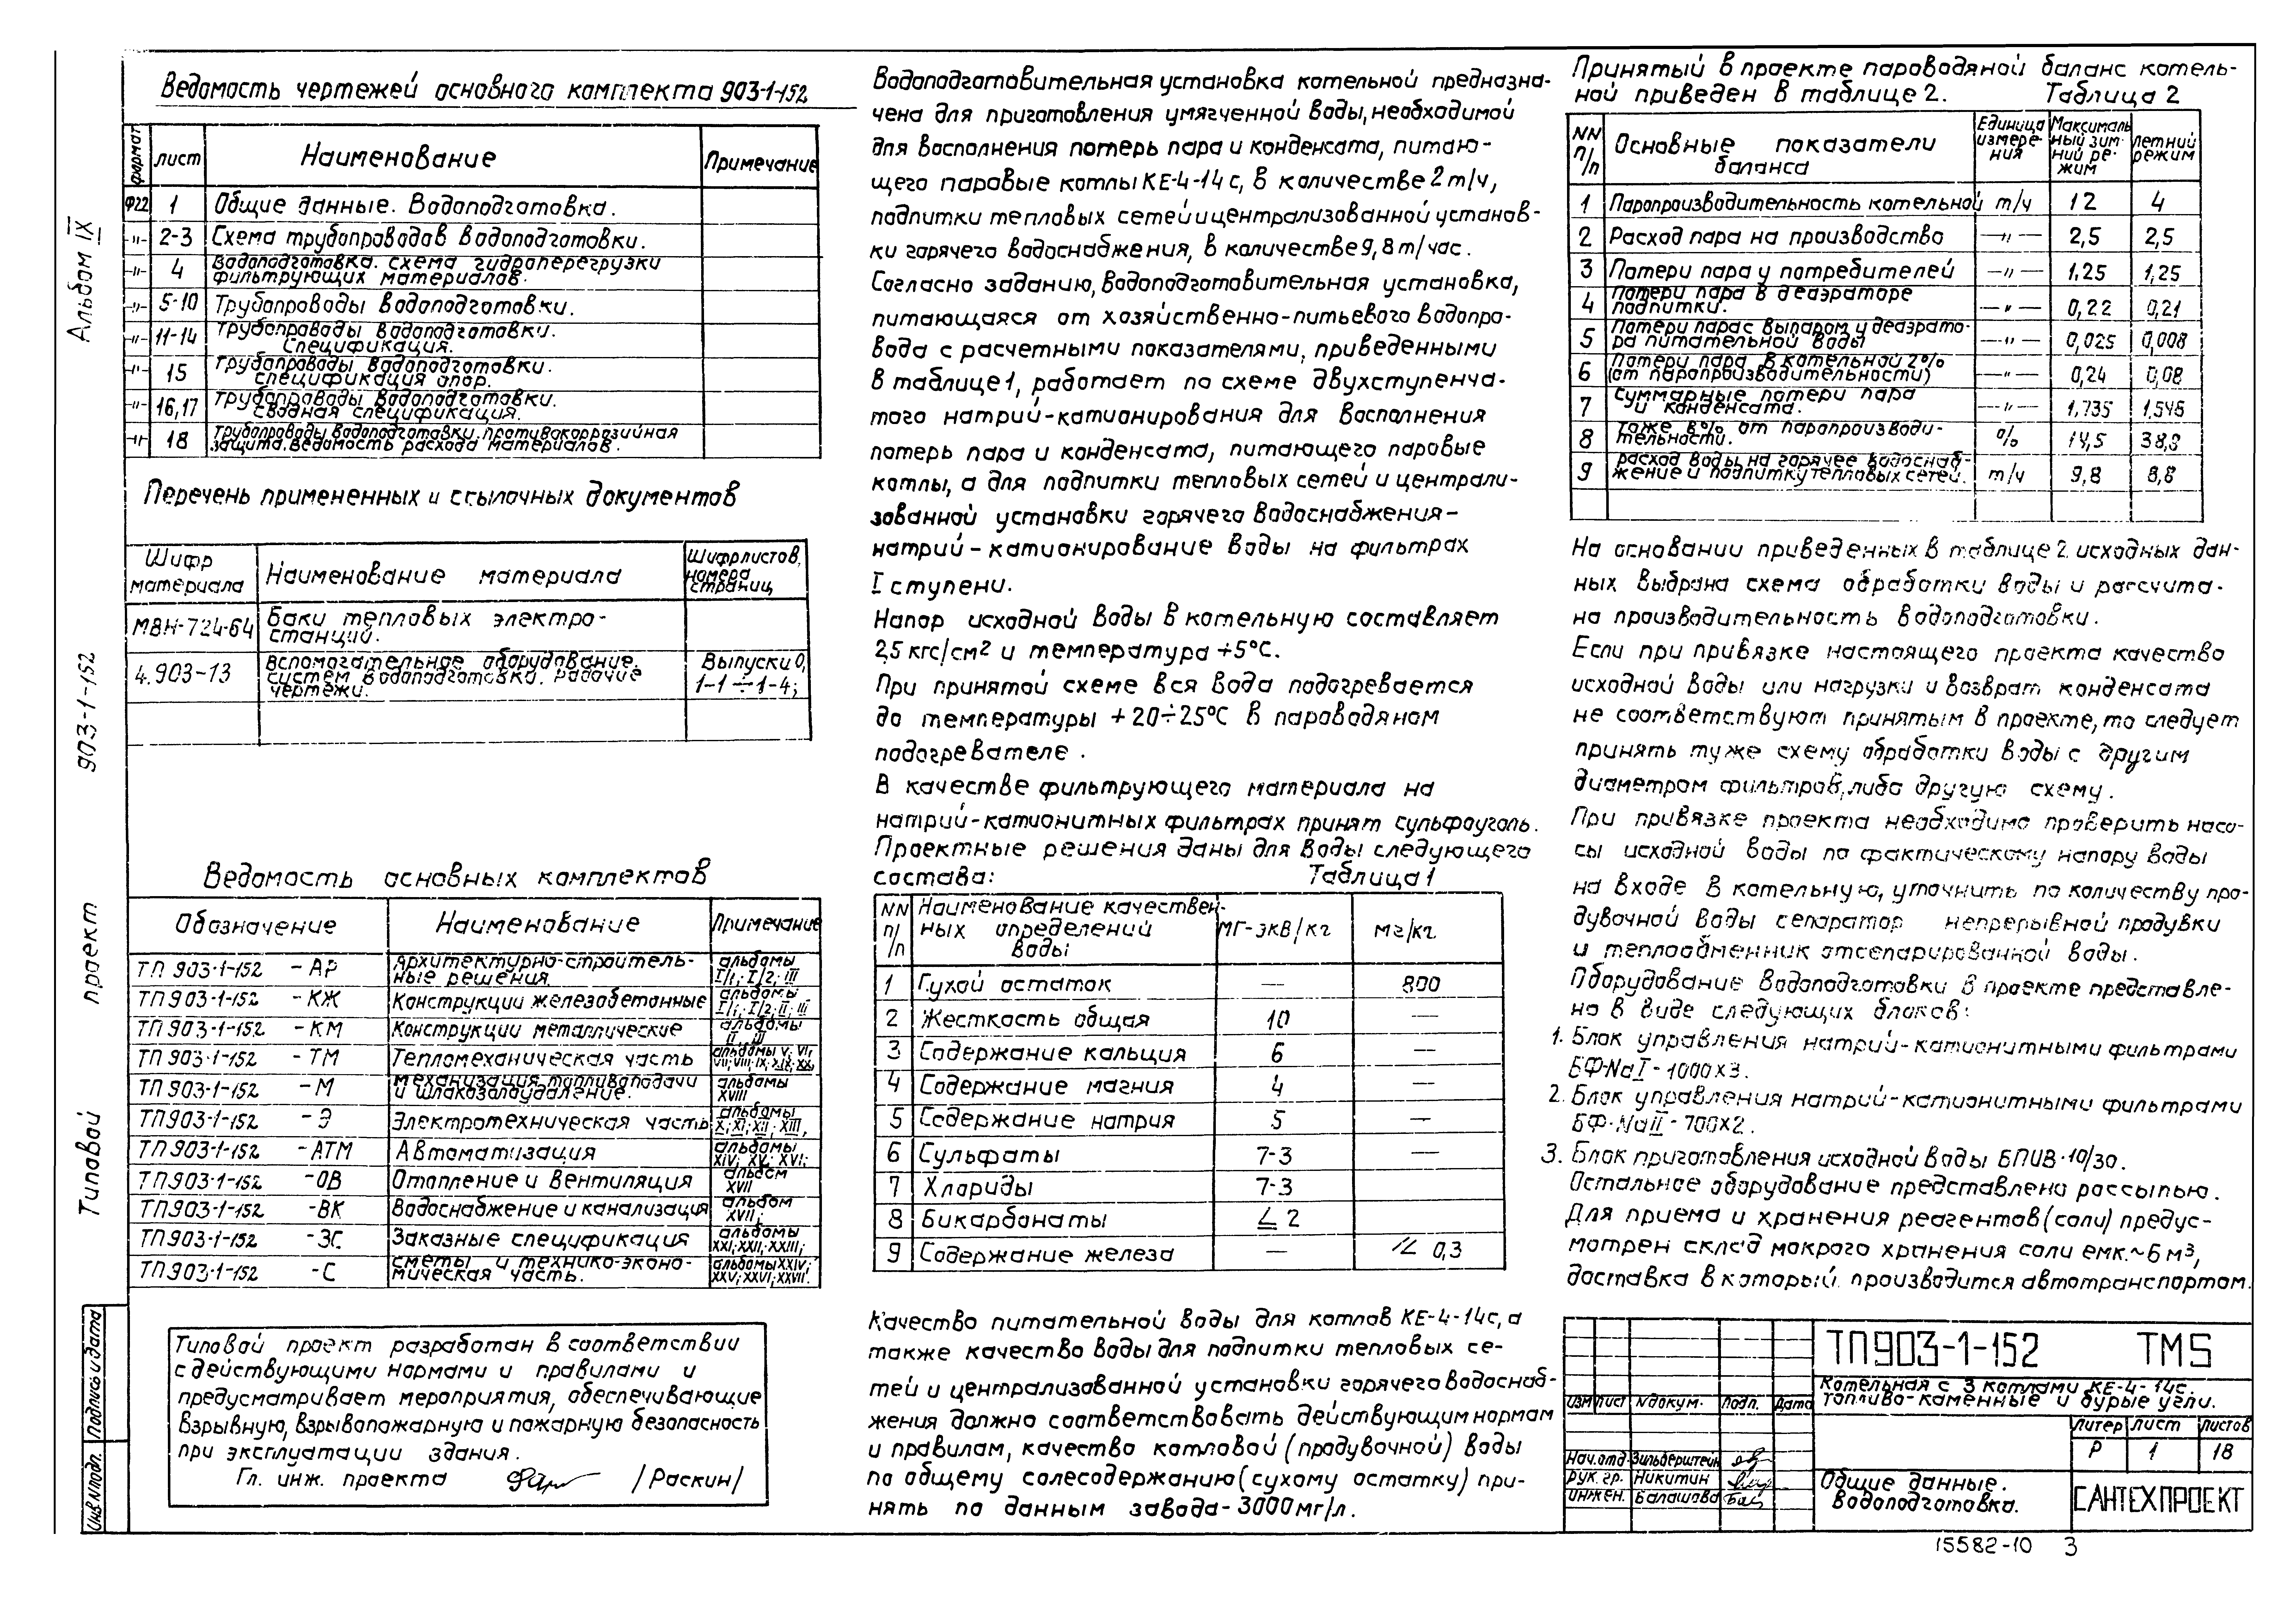 Альбом IX
903-1-152
Типовой проект
Подпись и дата
Инв.N подл.
Ведомость чертежей основного комплекта 903-1-152
формат лист Наименование Примечание
Ф22 1 Общие данные. Водоподготовка.
-"- 2-3 Схема трубопроводов водоподготовки.
-"- 4 Водоподготовка. схема гидроперегрузки
фильтрующих материалов.
-"- 5-10 Трубопроводы водоподготовки.
-"- 11-14 Трубопроводы водоподготовки.
Спецификация.
-"- 15 Трубопроводы водоподготовки.
спецификация опор.
-"- 16,17 Трубопроводы водоподготовки.
сводная спецификация.
-"- 18 Трубопроводы водоподготовки, противокоррозийная
защита. Ведомость расхода материалов.
Перечень примененных и ссылочных документов
Шифр материала Наименование материала Шифр листов, номера страниц
МВН-724-64 Баки тепловых электро-
станций.
4.903-13 Вспомогательное оборудование. Выпуски 0,
систем водоподготовки. рабочие 1-1÷1-4;
чертежи.
Ведомость основных комплектов
Обозначение Наименование Примечание
ТП 903-1-152 -АР Архитектурно-строитель-
ные решения. альбомы I/1; I/2; III
ТП903-1-152 -КЖ Конструкции железобетонные альбомы I/1; I/2; II; III
ТП903-1-152 -КМ Конструкции металлические альбомы II, III
ТП 903-1-152 -ТМ Тепломеханическая часть альбомы V; VI; VII; VIII; IX; XIX; XX;
ТП 903-1-152 -М механизация топливоподачи
и шлакозолоудаление. альбомы XVIII
ТП903-1-152 -Э Электротехническая часть альбомы X; XI; XII; XIII,
ТП903-1-152 -АТМ Автоматизация альбомы XIV; XV; XVI;
ТП903-1-152 -ОВ Отопление и вентиляция альбом XVII
ТП903-1-152 -ВК Водоснабжение и канализация альбом XVII;
ТП903-1-152 -ЗС Заказные спецификация альбомы XXI; XXII; XXIII;
ТП903-1-152 -С сметы и технико-эконо-
мическая часть. альбомы XXIV; XXV; XXVI; XXVII.
Типовой проект разработан в соответствии
с действующими нормами и правилами и
предусматривает мероприятия, обеспечивающие
взрывную, взрывопожарную и пожарную безопасность
при эксплуатации здания.
Гл. инж. проекта /Раскин/
Водоподготовительная установка котельной предназна-
чена для приготовления умягченной воды, необходимой
для восполнения потерь пара и конденсата, питаю-
щего паровые котлы КЕ-4-14с, в количестве 2 т/ч,
подпитки тепловых сетей и централизованной установ-
ки горячего водоснабжения, в количестве 9,8 т/час.
Согласно заданию, водоподготовительная установка,
питающаяся от хозяйственно-питьевого водопро-
вода с расчетными показателями, приведенными
в таблице 1, работает по схеме двухступенча-
того натрий-катионирования для восполнения
потерь пара и конденсата, питающего паровые
котлы, а для подпитки тепловых сетей и централи-
зованной установки горячего водоснабжения-
натрий-катионирование воды на фильтрах
I ступени.
Напор исходной воды в котельную составляет
2,5 кгс/см² и температура +5°С.
При принятой схеме вся вода подогревается
до температуры +20÷25°С в пароводяном
подогревателе.
В качестве фильтрующего материала на
натрий-катионитных фильтрах принят сульфоуголь.
Проектные решения даны для воды следующего
состава: Таблица 1
NN п/п Наименование качествен-
ных определений
воды мг-экв/кг мг/кг
1 Сухой остаток — 800
2 Жесткость общая 10 —
3 Содержание кальция 6 —
4 Содержание магния 4 —
5 Содержание натрия 5 —
6 Сульфаты 7-3 —
7 Хлориды 7-3
8 Бикарбонаты ≤ 2
9 Содержание железа — ≤ 0,3
Качество питательной воды для котлов КЕ-4-14с, а
также качество воды для подпитки тепловых се-
тей и централизованной установки горячего водоснаб-
жения должно соответствовать действующим нормам
и правилам, качество котловой (продувочной) воды
по общему солесодержанию (сухому остатку) при-
нять по данным завода-3000мг/л.
Принятый в проекте пароводяной баланс котель-
ной приведен в таблице 2. Таблица 2
NN п/п Основные показатели баланса Единица измере-ния Максималь ный зим-ний ре-жим летний режим
1 Паропроизводительность котельной т/ч 12 4
2 Расход пара на производство —"— 2,5 2,5
3 Потери пара у потребителей —"— 1,25 1,25
4 Потери пара в деаэраторе
подпитки. —"— 0,22 0,21
5 Потери пара с выпаром у деаэрато-
ра питательной воды —"— 0,025 0,008
6 Потери пара в котельной 2%
(от паропроизводительности) —"— 0,24 0,08
7 Суммарные потери пара
и конденсата. —"— 1,735 1,545
8 тоже в % от паропроизводи-
тельности. % 14,5 38,8
9 расход воды на горячее водоснаб-
жение и подпитку тепловых сетей. т/ч 9,8 8,8
На основании приведенных в таблице 2 исходных дан-
ных выбрана схема обработки воды и рассчита-
на производительность водоподготовки.
Если при привязке настоящего проекта качество
исходной воды или нагрузки и возврат конденсата
не соответствуют принятым в проекте, то следует
принять ту же схему обработки воды с другим
диаметром фильтров, либо другую схему.
При привязке проекта необходимо проверить насо-
сы исходной воды по фактическому напору воды
на входе в котельную, уточнить по количеству про-
дувочной воды сепаратор непрерывной продувки
и теплообменник отсепарированной воды.
Оборудование водоподготовки в проекте представле-
но в виде следующих блоков:
1. Блок управления натрий-катионитными фильтрами
БФ-NаI-1000х3.
2. Блок управления натрий-катионитными фильтрами
БФ-NаII-700х2.
3. Блок приготовления исходной воды БПИВ-10/30.
Остальное оборудование представлено россыпью.
Для приема и хранения реагентов (соли) предус-
мотрен склад мокрого хранения соли емк.~6 м³,
доставка в который производится автотранспортом.
ТП903-1-152 ТМ5
Котельная с 3 котлами КЕ-4-14с.
Топливо-каменные и бурые угли.
Изм Лист Nдокум. Подп. Дата
Литер Лист Листов
Р 1 18
Нач.отд. Зильберштеин
Рук. гр. Никитин
Инжен. Балашова
Общие данные.
Водоподготовка.
САНТЕХПРОЕКТ
15582-10 3